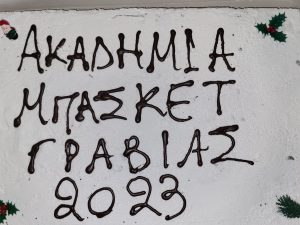 ΑΚΑΔΗΜΙΑ
ΜΠΑΣΚΕΤ
ΓΡΑΒΙΑΣ
2023